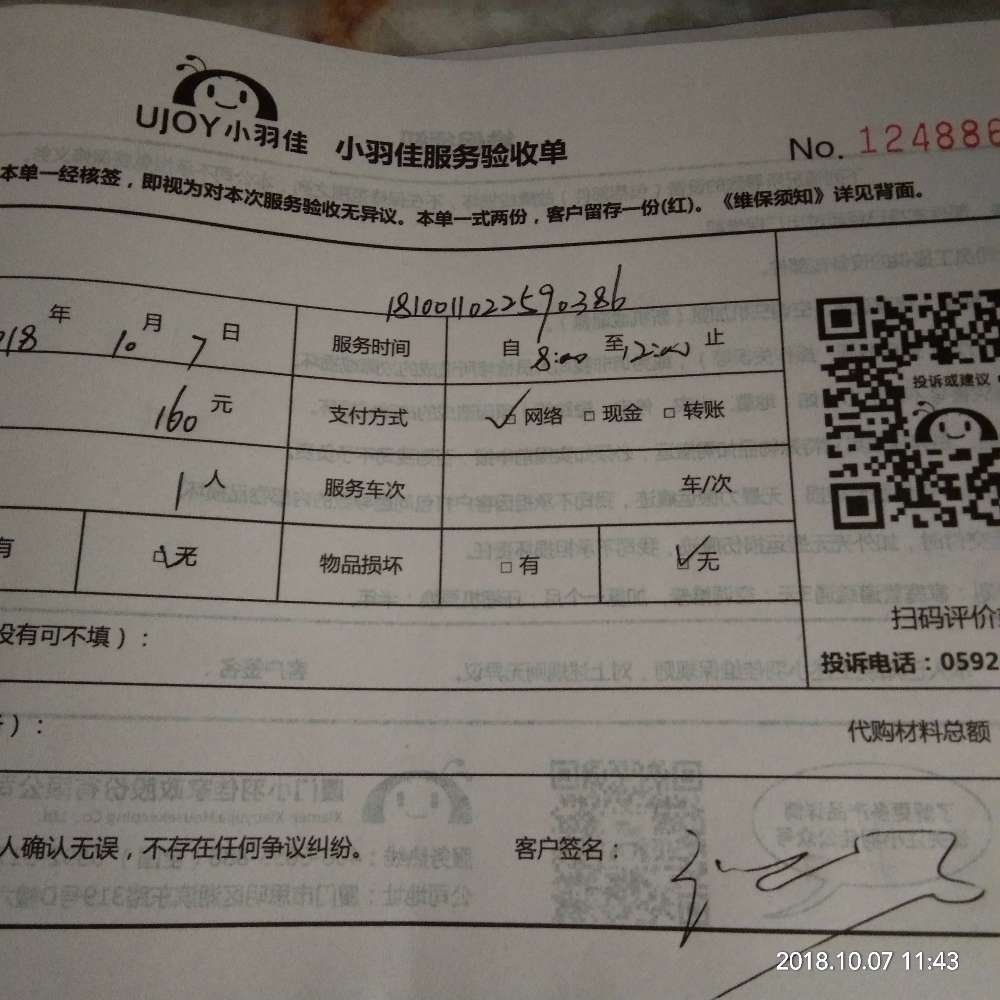 UJOY小羽佳 小羽佳服务验收单 No. 124886
本单一经核签，即视为对本次服务验收无异议。本单一式两份，客户留存一份(红)。《维保须知》详见背面。
1810011022590386
018 年 10 月 7 日 服务时间 自 8:00 至 12:00 止
160 元 支付方式 ✓□ 网络 □ 现金 □ 转账
投诉或建议
1 人 服务车次 车/次
有 □✓无 物品损坏 □ 有 □✓无
没有可不填）：
扫码评价
投诉电话：0592
）：
代购材料总额
人确认无误，不存在任何争议纠纷。 客户签名：
2018.10.07 11:43